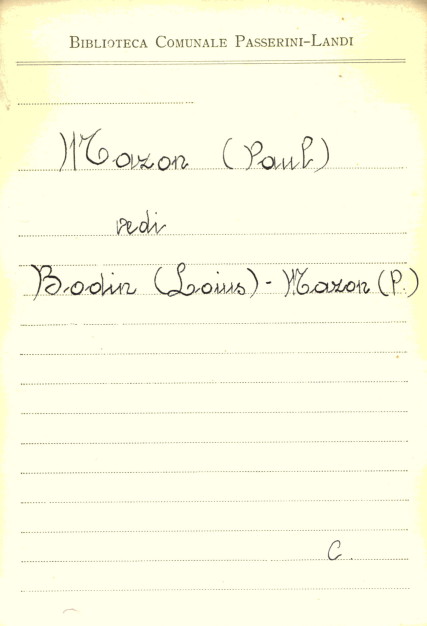 BIBLIOTECA COMUNALE PASSERINI-LANDI
Mazon (Paul)
vedi
Bodin (Loius) - Mazon (P.)
C.